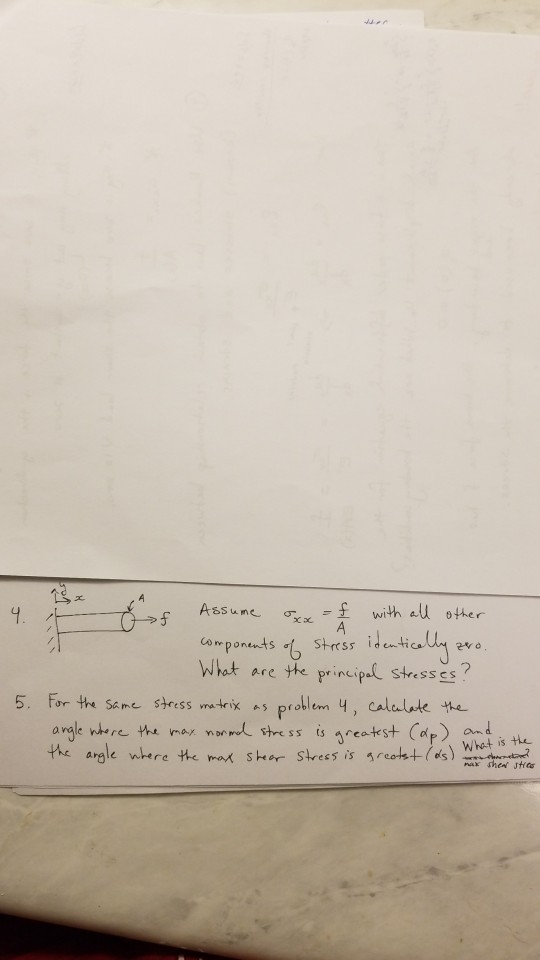 4.
y
x
A
f
Assume σxx = f/A with all other
components of stress identically zero.
What are the principal stresses?
5. For the same stress matrix as problem 4, calculate the
angle where the max normal stress is greatest (αp) and
the angle where the max shear stress is greatest (αs)
What is the
max shear stress
?